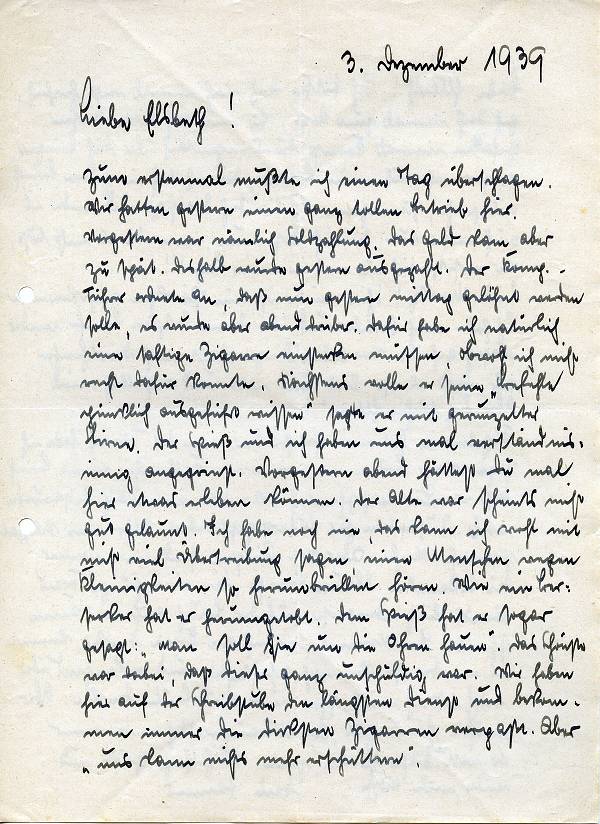 3. Dezember 1939
Liebe Elsbeth!
Zum erstenmal mußte ich einen Tag überschlagen.
Wir hatten gestern einen ganz tollen Betrieb hier.
Vorgestern war nämlich Soldzahlung. Das Geld kam aber
zu spät. Deshalb wurde gestern ausgezahlt. Der Komp.-
führer ordnete an, daß nun gestern mittag gelöhnt werden
solle, es wurde aber abend drüber. Dafür habe ich natürlich
eine saftige Zigarre einstecken müssen, obwohl ich nicht
recht dafür konnte. Nächstens wolle er seine „Befehle
pünktlich ausgeführt wissen" sagte er mit gerunzelter
Stirne. Der Spieß und ich haben uns mal verständnis-
innig angegrinst. Vorgestern abend hättest Du mal
hier etwas erleben können. Der Alte war scheints nicht
gut gelaunt. Ich habe noch nie, das kann ich wohl mit
nicht viel Übertreibung sagen, einen Menschen wegen
Kleinigkeiten so herumbrüllen hören. Wie ein Ber-
serker hat er herumgetobt. Dem Spieß hat er sogar
gesagt: „man soll Sie um die Ohren hauen". Das Schönste
war dabei, daß dieser ganz unschuldig war. Wir haben
hier auf der Schreibstube den längsten Dienst und bekom-
men immer die dicksten Zigarren verpaßt. Aber
„uns kann nichts mehr erschüttern".